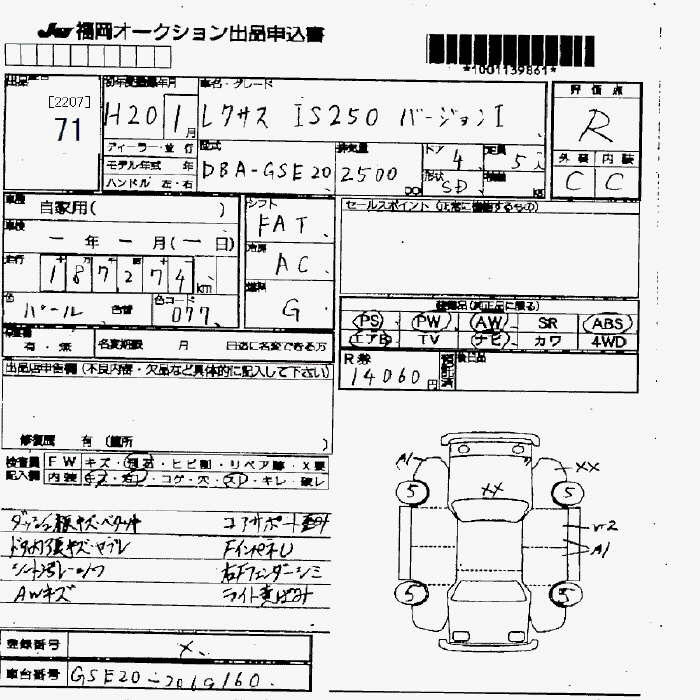 JU福岡オークション出品申込書
*1001139861*
初年度登録年月
車名・グレード
評価点
[2207]
71
H20 1月
レクサス IS250 バージョンI
R
ディーラー・並行
モデル年式 年
ハンドル 左・右
型式
DBA-GSE20
排気量
2500
cc
ドア
4
定員
5人
形状
SD
外装 内装
C C
車歴
自家用( )
シフト
FAT
セールスポイント(正常に機能するもの)
車検
年 月(一日)
冷房
AC
走行
187274 km
燃料
G
色
パール
色替
色コード
077
装備品(純正品に限る)
PS PW AW SR ABS
エアB TV ナビ カワ 4WD
有・無
名変期限 月 日迄に名変できる方
R券
14060円
後日品
出品店申告欄(不良内容・欠品など具体的に記入して下さい)
修復歴 有(箇所 )
検査員
記入欄
FW キズ・飛石・ヒビ割・リペア跡・X要
内装 キズ・汚レ・コゲ・穴・スレ・キレ・破レ
コアサポート
AWキズ
ライト黄ばみ
A1
XX
XX
5 5
A1
5 5
登録番号
X
車台番号
GSE20-